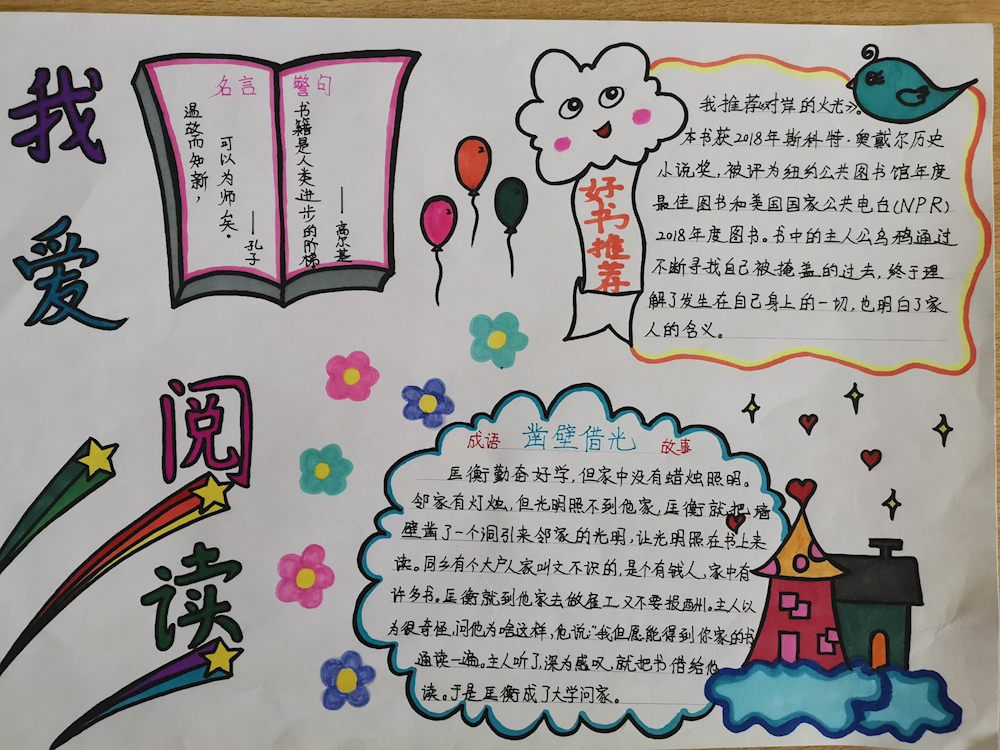 我
爱
阅
读
名言 警句
温故而知新，
可以为师矣。
——孔子
书籍是人类进步的阶梯
——高尔基
好书推荐
我推荐《对岸的火光》。
本书获2018年斯科特·奥戴尔历史
小说奖，被评为纽约公共图书馆年度
最佳图书和美国国家公共电台(NPR)
2018年度图书。书中的主人公乌鸦通过
不断寻找自己被掩盖的过去，终于理
解了发生在自己身上的一切，也明白了家
人的含义。
成语 凿壁借光 故事
匡衡勤奋好学，但家中没有蜡烛照明。
邻家有灯烛，但光明照不到他家，匡衡就把墙
壁凿了一个洞引来邻家的光明，让光明照在书上来
读。同乡有个大户人家叫文不识的，是个有钱人，家中有
许多书。匡衡就到他家去做雇工又不要报酬。主人以
为很奇怪，问他为啥这样，他说："我但愿能得到你家的书
通读一遍。主人听了，深为感叹，就把书借给他
读。于是匡衡成了大学问家。